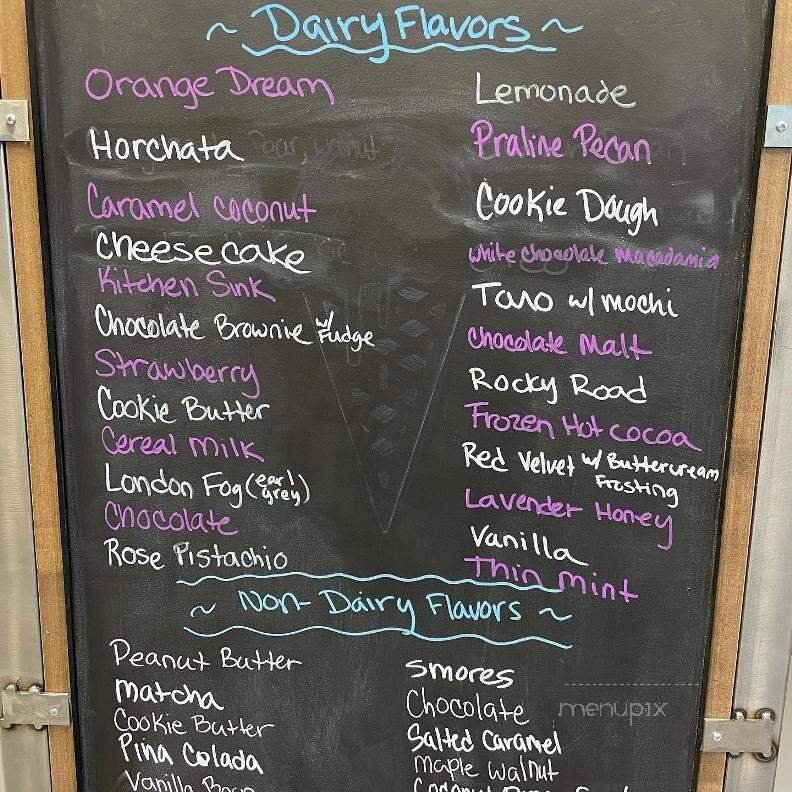 ~ Dairy Flavors ~
Orange Dream
Horchata
Caramel coconut
Cheesecake
Kitchen Sink
Chocolate Brownie w/ Fudge
Strawberry
Cookie Butter
Cereal Milk
London Fog (earl grey)
Chocolate
Rose Pistachio
Lemonade
Praline Pecan
Cookie Dough
White chocolate Macadamia
Taro w/ mochi
Chocolate Malt
Rocky Road
Frozen Hot cocoa
Red Velvet w/ Buttercream
Frosting
Lavender Honey
Vanilla
Thin Mint
~ Non-Dairy Flavors ~
Peanut Butter
matcha
Cookie Butter
Pina Colada
Vanilla
smores
Chocolate
Salted Caramel
maple walnut
Coconut
menupix